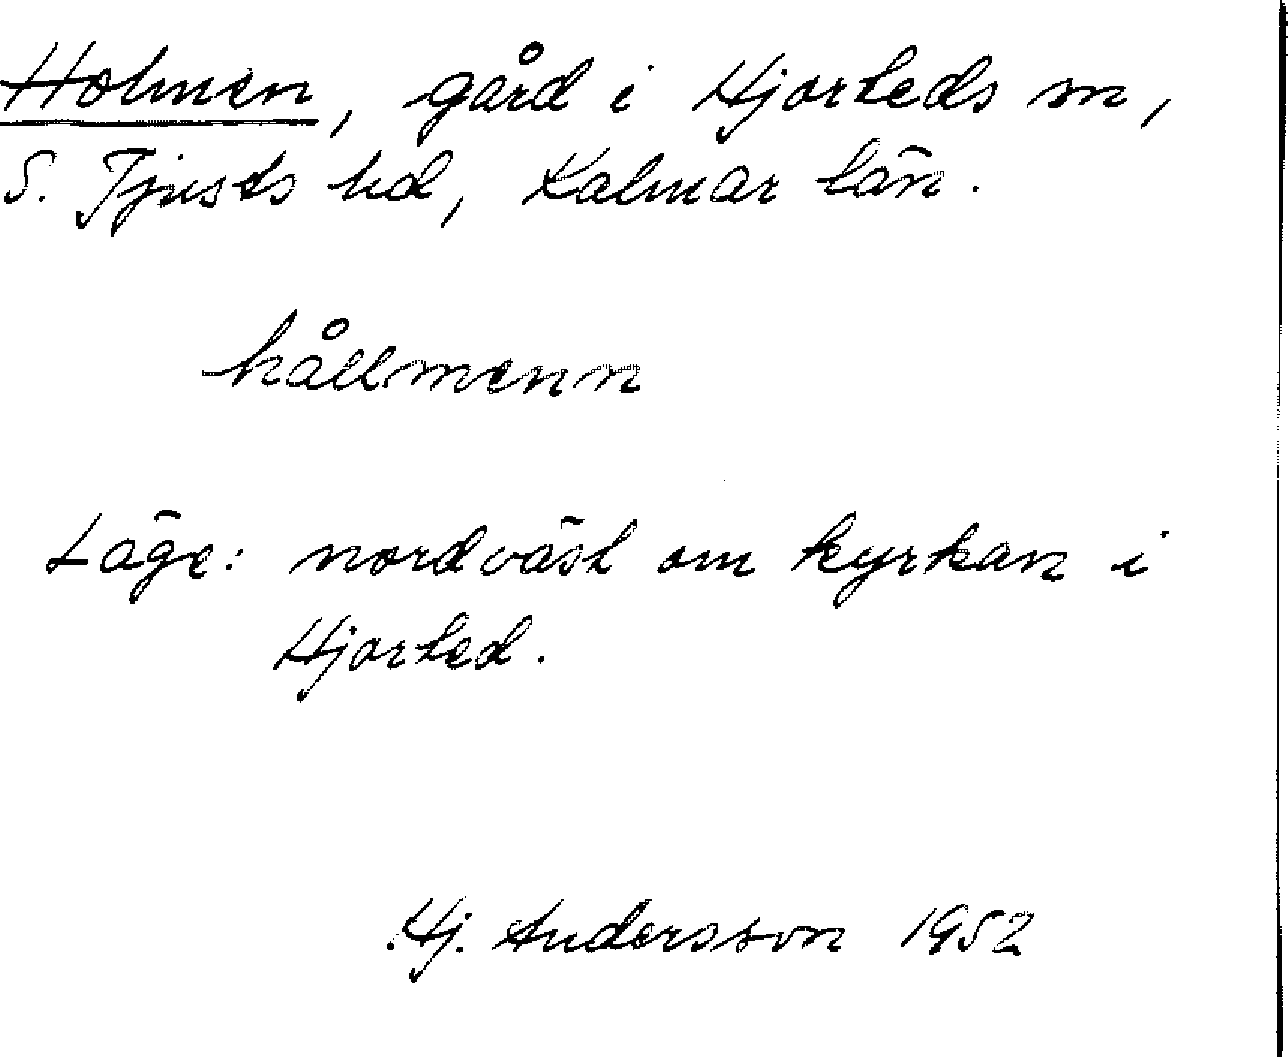 Holmen, gård i Hjorteds sn,
S. Tjusts hd, Kalmar län.
hållmenn
Läge: nordväst om kyrkan i
Hjorted.
Hj. Andersson 1952